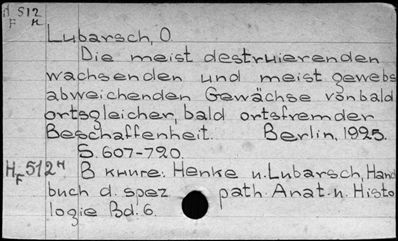 H 512
F н
Lubarsch, O.
Die meist destruierenden
wachsenden und meist gewebs
abweichenden Gewächse von bald
ortsgleicher, bald ortsfremder
Beschaffenheit. Berlin, 1925.
S. 607-720.
H F 512 н В книге: Henke u. Lubarsch, Hand
buch d. spez path. Anat. u. Histo
logie Bd. 6.